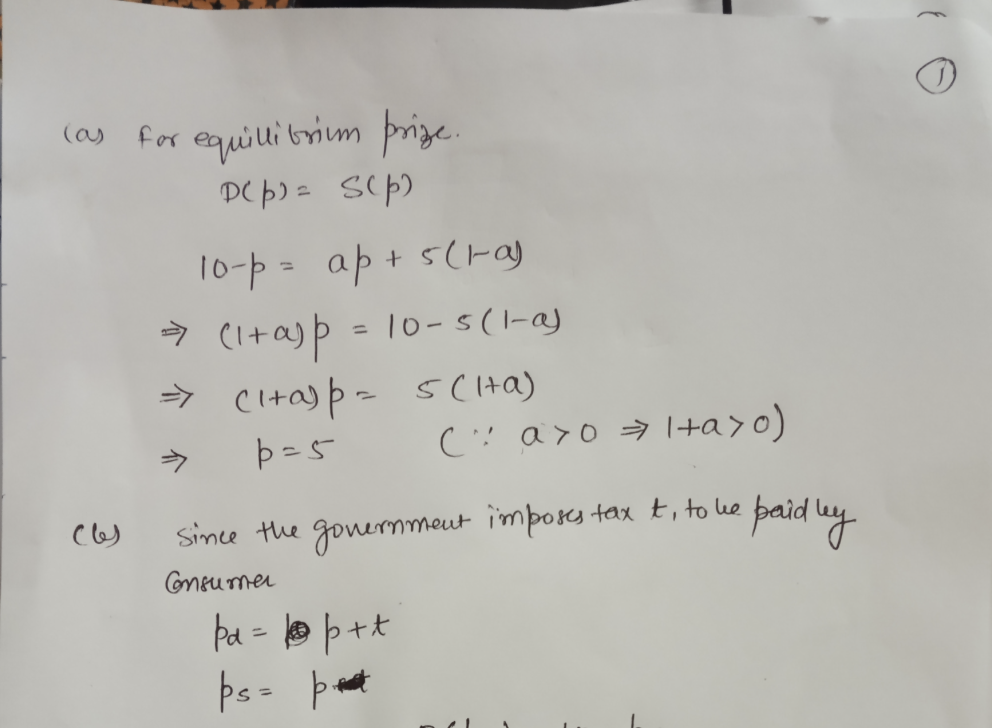 ①
(a) For equillibrium prize.
D(p) = S(p)
10-p = ap + 5(1-a)
⇒ (1+a)p = 10-5(1-a)
⇒ (1+a)p = 5(1+a)
⇒ p=5 (∵ a>0 ⇒ 1+a>0)
(b) Since the government imposes tax t, to be paid by
Consumer
pd = p+t
ps = p